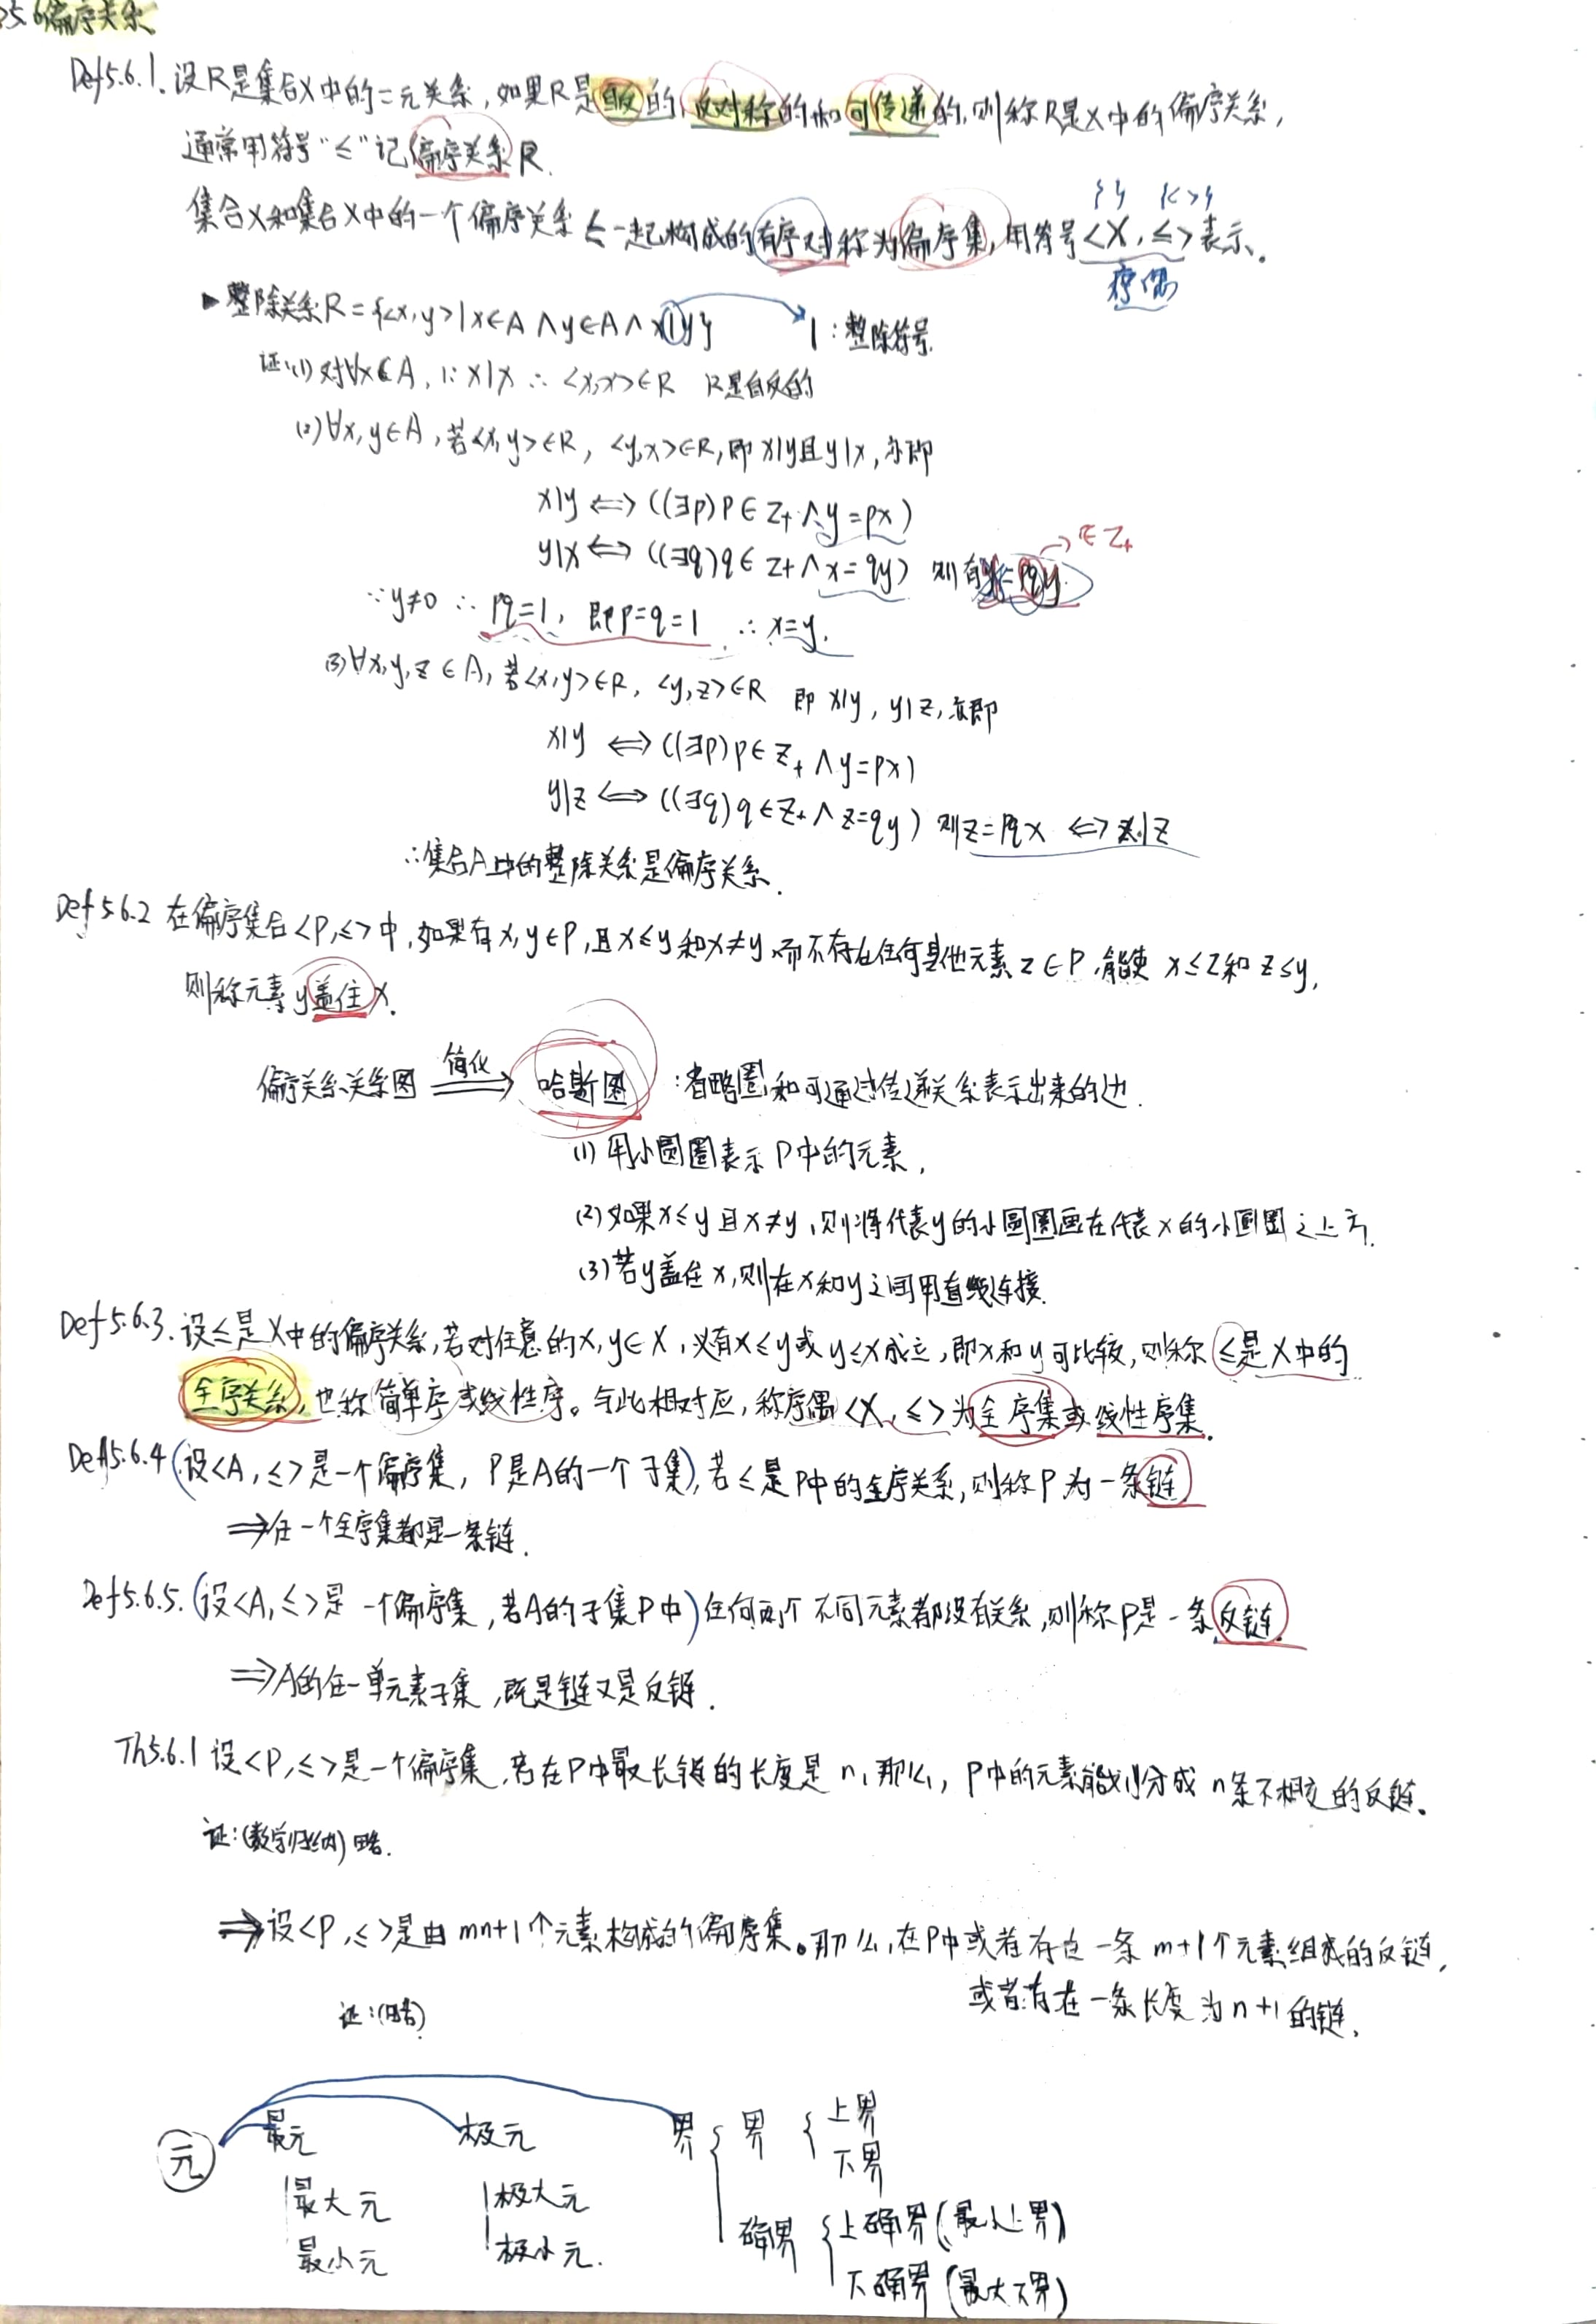 5.6偏序关系
Def5.6.1.设R是集合X中的二元关系,如果R是自反的,反对称的和可传递的,则称R是X中的偏序关系,
通常用符号“≤”记偏序关系R.
{ } {< >}
集合X和集合X中的一个偏序关系≤一起构成的有序对称为偏序集,用符号<X,≤>表示.
序偶
▶整除关系R={<x,y>|x∈A∧y∈A∧x|y} |:整除符号.
证:(1)对∀x∈A,∵x|x ∴<x,x>∈R R是自反的
(2)∀x,y∈A,若<x,y>∈R,<y,x>∈R,即x|y且y|x,亦即
x|y⟺((∃p)p∈Z+∧y=px)
y|x⟺((∃q)q∈Z+∧x=qy) 则有y=pqy. →∈Z+
∵y≠0 ∴pq=1,即p=q=1 ∴x=y.
(3)∀x,y,z∈A,若<x,y>∈R,<y,z>∈R 即x|y,y|z,亦即
x|y⟺((∃p)p∈Z+∧y=px)
y|z⟺((∃q)q∈Z+∧z=qy) 则z=pqx⟺x|z
∴集合A中的整除关系是偏序关系.
Def5.6.2 在偏序集合<P,≤>中,如果有x,y∈P,且x≤y和x≠y,而不存在任何其他元素z∈P,能使x≤z和z≤y,
则称元素y盖住x.
偏序关系关系图 简化⟹ 哈斯图:省略圈和可通过传递关系表示出来的边.
(1)用小圆圈表示P中的元素,
(2)如果x≤y且x≠y,则将代表y的小圆圈画在代表x的小圆圈之上方.
(3)若y盖住x,则在x和y之间用直线连接.
Def5.6.3.设≤是X中的偏序关系,若对任意的x,y∈X,必有x≤y或y≤x成立,即x和y可比较,则称≤是X中的
全序关系,也称简单序或线性序。与此相对应,称序偶<X,≤>为全序集或线性序集.
Def5.6.4(设<A,≤>是一个偏序集,P是A的一个子集),若≤是P中的全序关系,则称P为一条链.
⟹任一个全序集都是一条链.
Def5.6.5.(设<A,≤>是一个偏序集,若A的子集P中)任何两个不同元素都没有关系,则称P是一条反链.
⟹A的任一单元素子集,既是链又是反链.
Th5.6.1 设<P,≤>是一个偏序集,若在P中最长链的长度是n,那么,P中的元素能划分成n条不相交的反链.
证:(数学归纳)略.
⟹设<P,≤>是由mn+1个元素构成的偏序集。那么,在P中或者存在一条m+1个元素组成的反链,
或者存在一条长度为n+1的链.
证:(略)
元 最元 极元 界 { 界 { 上界
下界
最大元 极大元
最小元 极小元.
确界 { 上确界(最小上界)
下确界(最大下界)